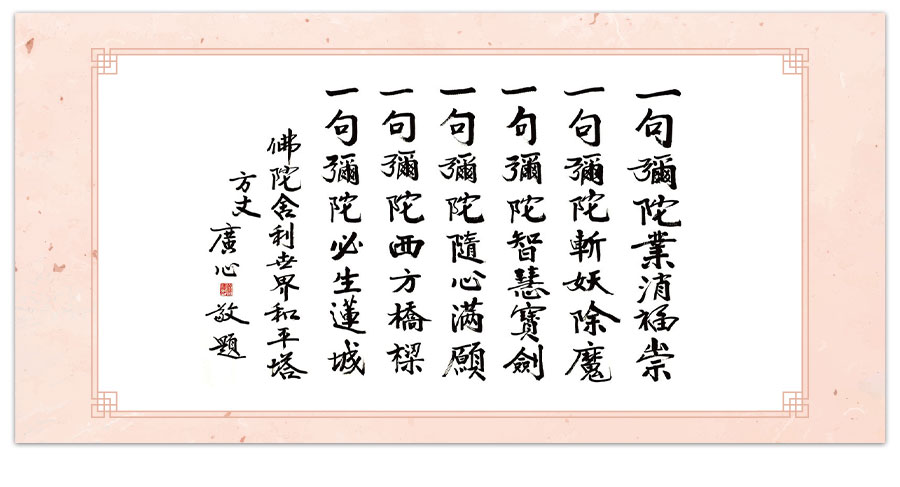 一句彌陀業消福崇
一句彌陀斬妖除魔
一句彌陀智慧寶劍
一句彌陀隨心滿願
一句彌陀西方橋樑
一句彌陀必生蓮城
佛陀舍利世界和平塔
方丈
廣心 敬題